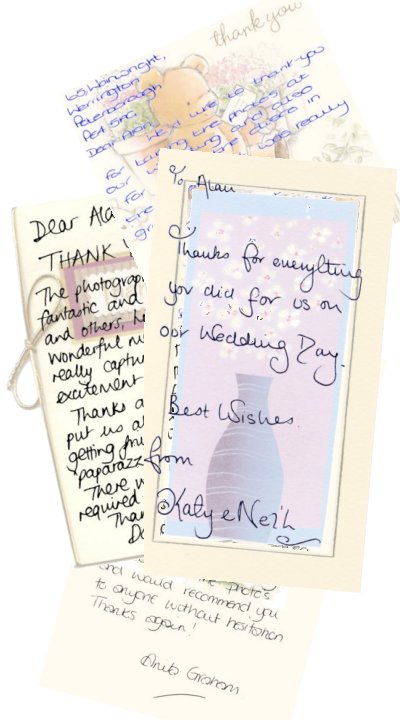 thank you
Werrington
Peterborough
Dear Alan, Just like to thank-you
for taking the photos at
our wedding and also
for
really
Dear Ala
THANK
The photograp
fantastic and
and others, he
wonderful m
really captu
excitement
Thanks a
put us a
getting fru
'paparazz
There w
required
Than
D
To Alan
Thanks for everything
you did for us on
our Wedding Day.
Best Wishes
from
Katy e Neil
and would recommend you
to anyone without hesitation
Thanks again!
Anita Graham